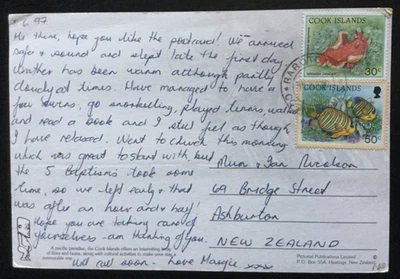 97
Hi there, hope you like the postcard! We arrived
safe & sound and slept late the first day.
Weather has been warm although partly
cloudy at times. Have managed to have a
few swims, go snorkelling, played tennis, walked
and read a book and I still feel as though
I have relaxed. Went to church this morning
which was great to start with, but
the 5 Baptisms took some
time, so we left early & that
was after an hour and a half!
Hope you are taking care of
yourselves - am thinking of you.
Will call soon - love Margie xxx
Mum & Ian Nicolson
69 Bridge Street
Ashburton
NEW ZEALAND
COOK ISLANDS
30c
COOK ISLANDS
50c
RAR
A pacific paradise, the Cook Islands offers an interesting
of flora and fauna, along with cultural activities to make your stay a
memorable
Pictorial Publications Limited
P.O. Box 558, Hastings, New Zealand.